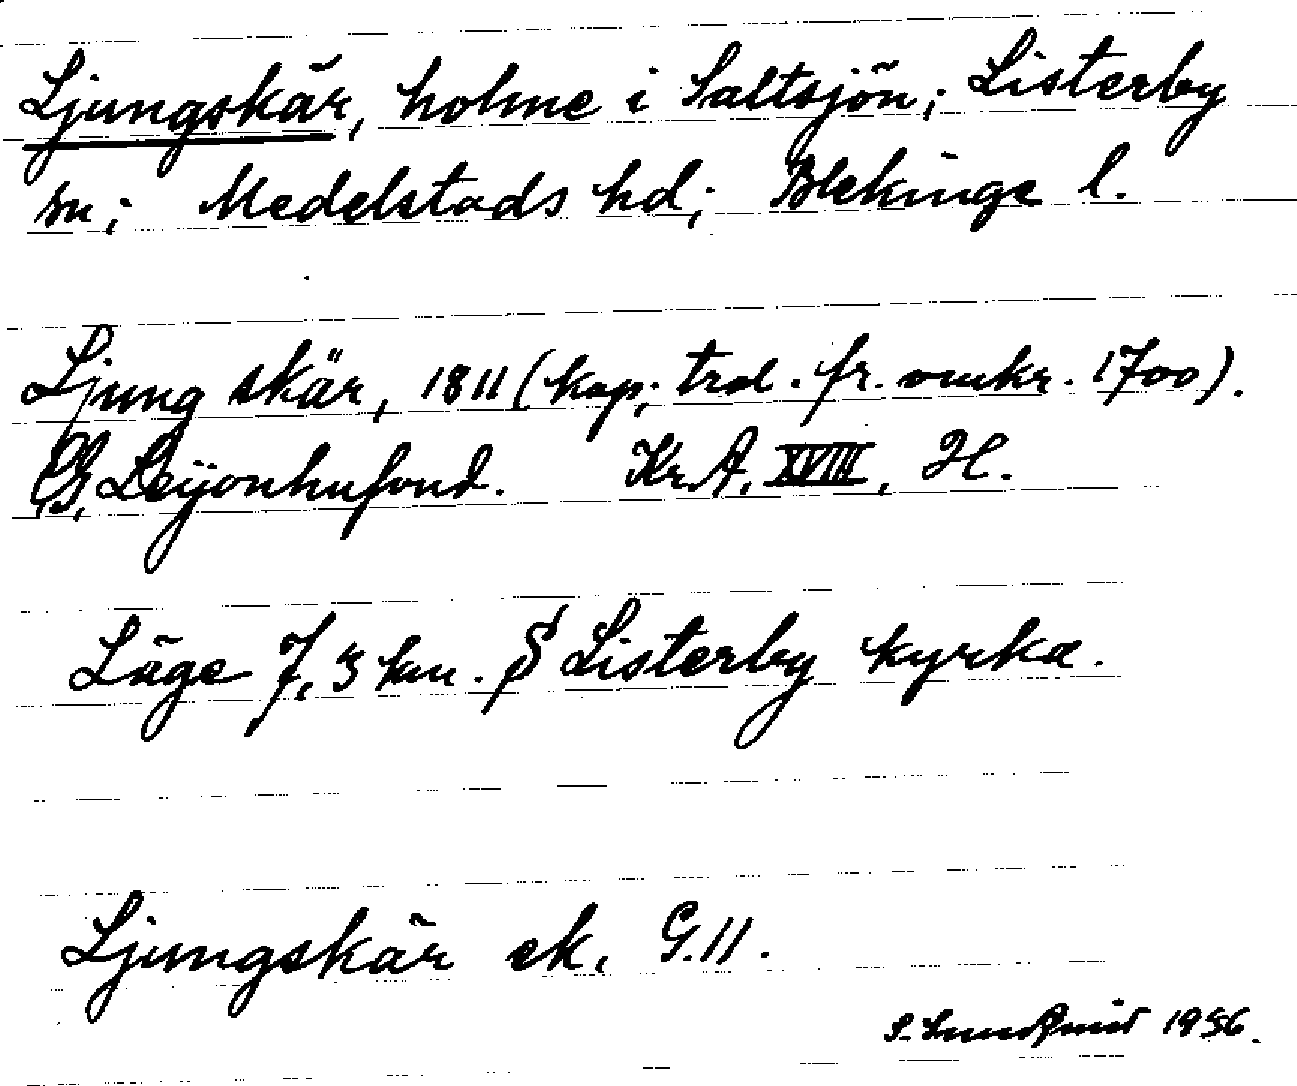 Ljungskär, holme i Saltsjön; Listerby
sn; Medelstads hd; Blekinge l.
Ljung skär, 1811 (kop; trol. fr. omkr. 1700).
C.G. Leijonhufvud. Kr.A. XVIII, H.
Läge 7,5 km. S Listerby kyrka.
Ljungskär ek. G.11.
S. Sundqvist 1956.